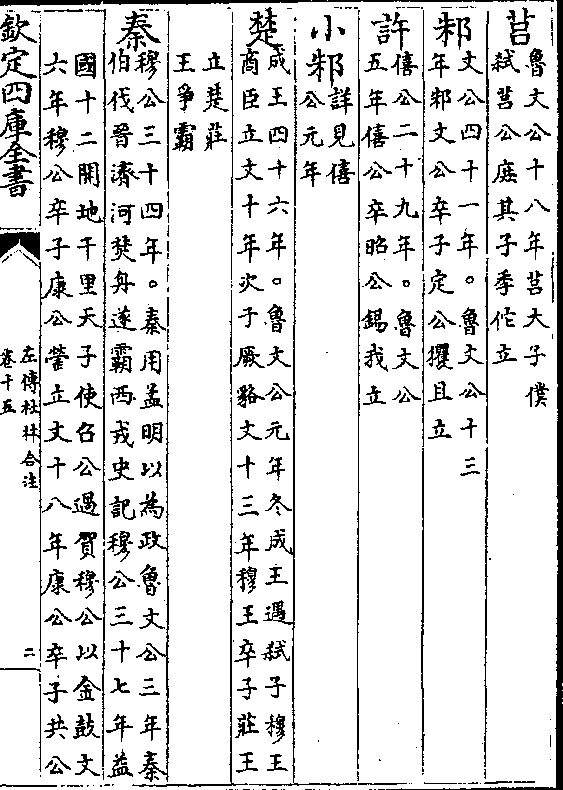 莒魯文公十八年莒大子僕
弑莒公庶其子季佗立
邾文公四十一年。魯文公十三
年邾文公卒子定公玃且立
許僖公二十九年。魯文公
五年僖公卒昭公錫我立
小邾詳見僖
公元年
楚成王四十六年。魯文公元年冬成王遇弑子穆王
商臣立文十年次于厥貉文十三年穆王卒子莊王
立楚莊
王爭霸
秦穆公三十四年。秦用孟明以為政魯文公三年秦
伯伐晉濟河焚舟遂霸西戎史記穆公三十七年益
國十二開地千里天子使召公過賀穆公以金鼓文
六年穆公卒子康公罃立文十八年康公卒子共公
欽定四庫全書
左傳杜林合注
卷十五
二